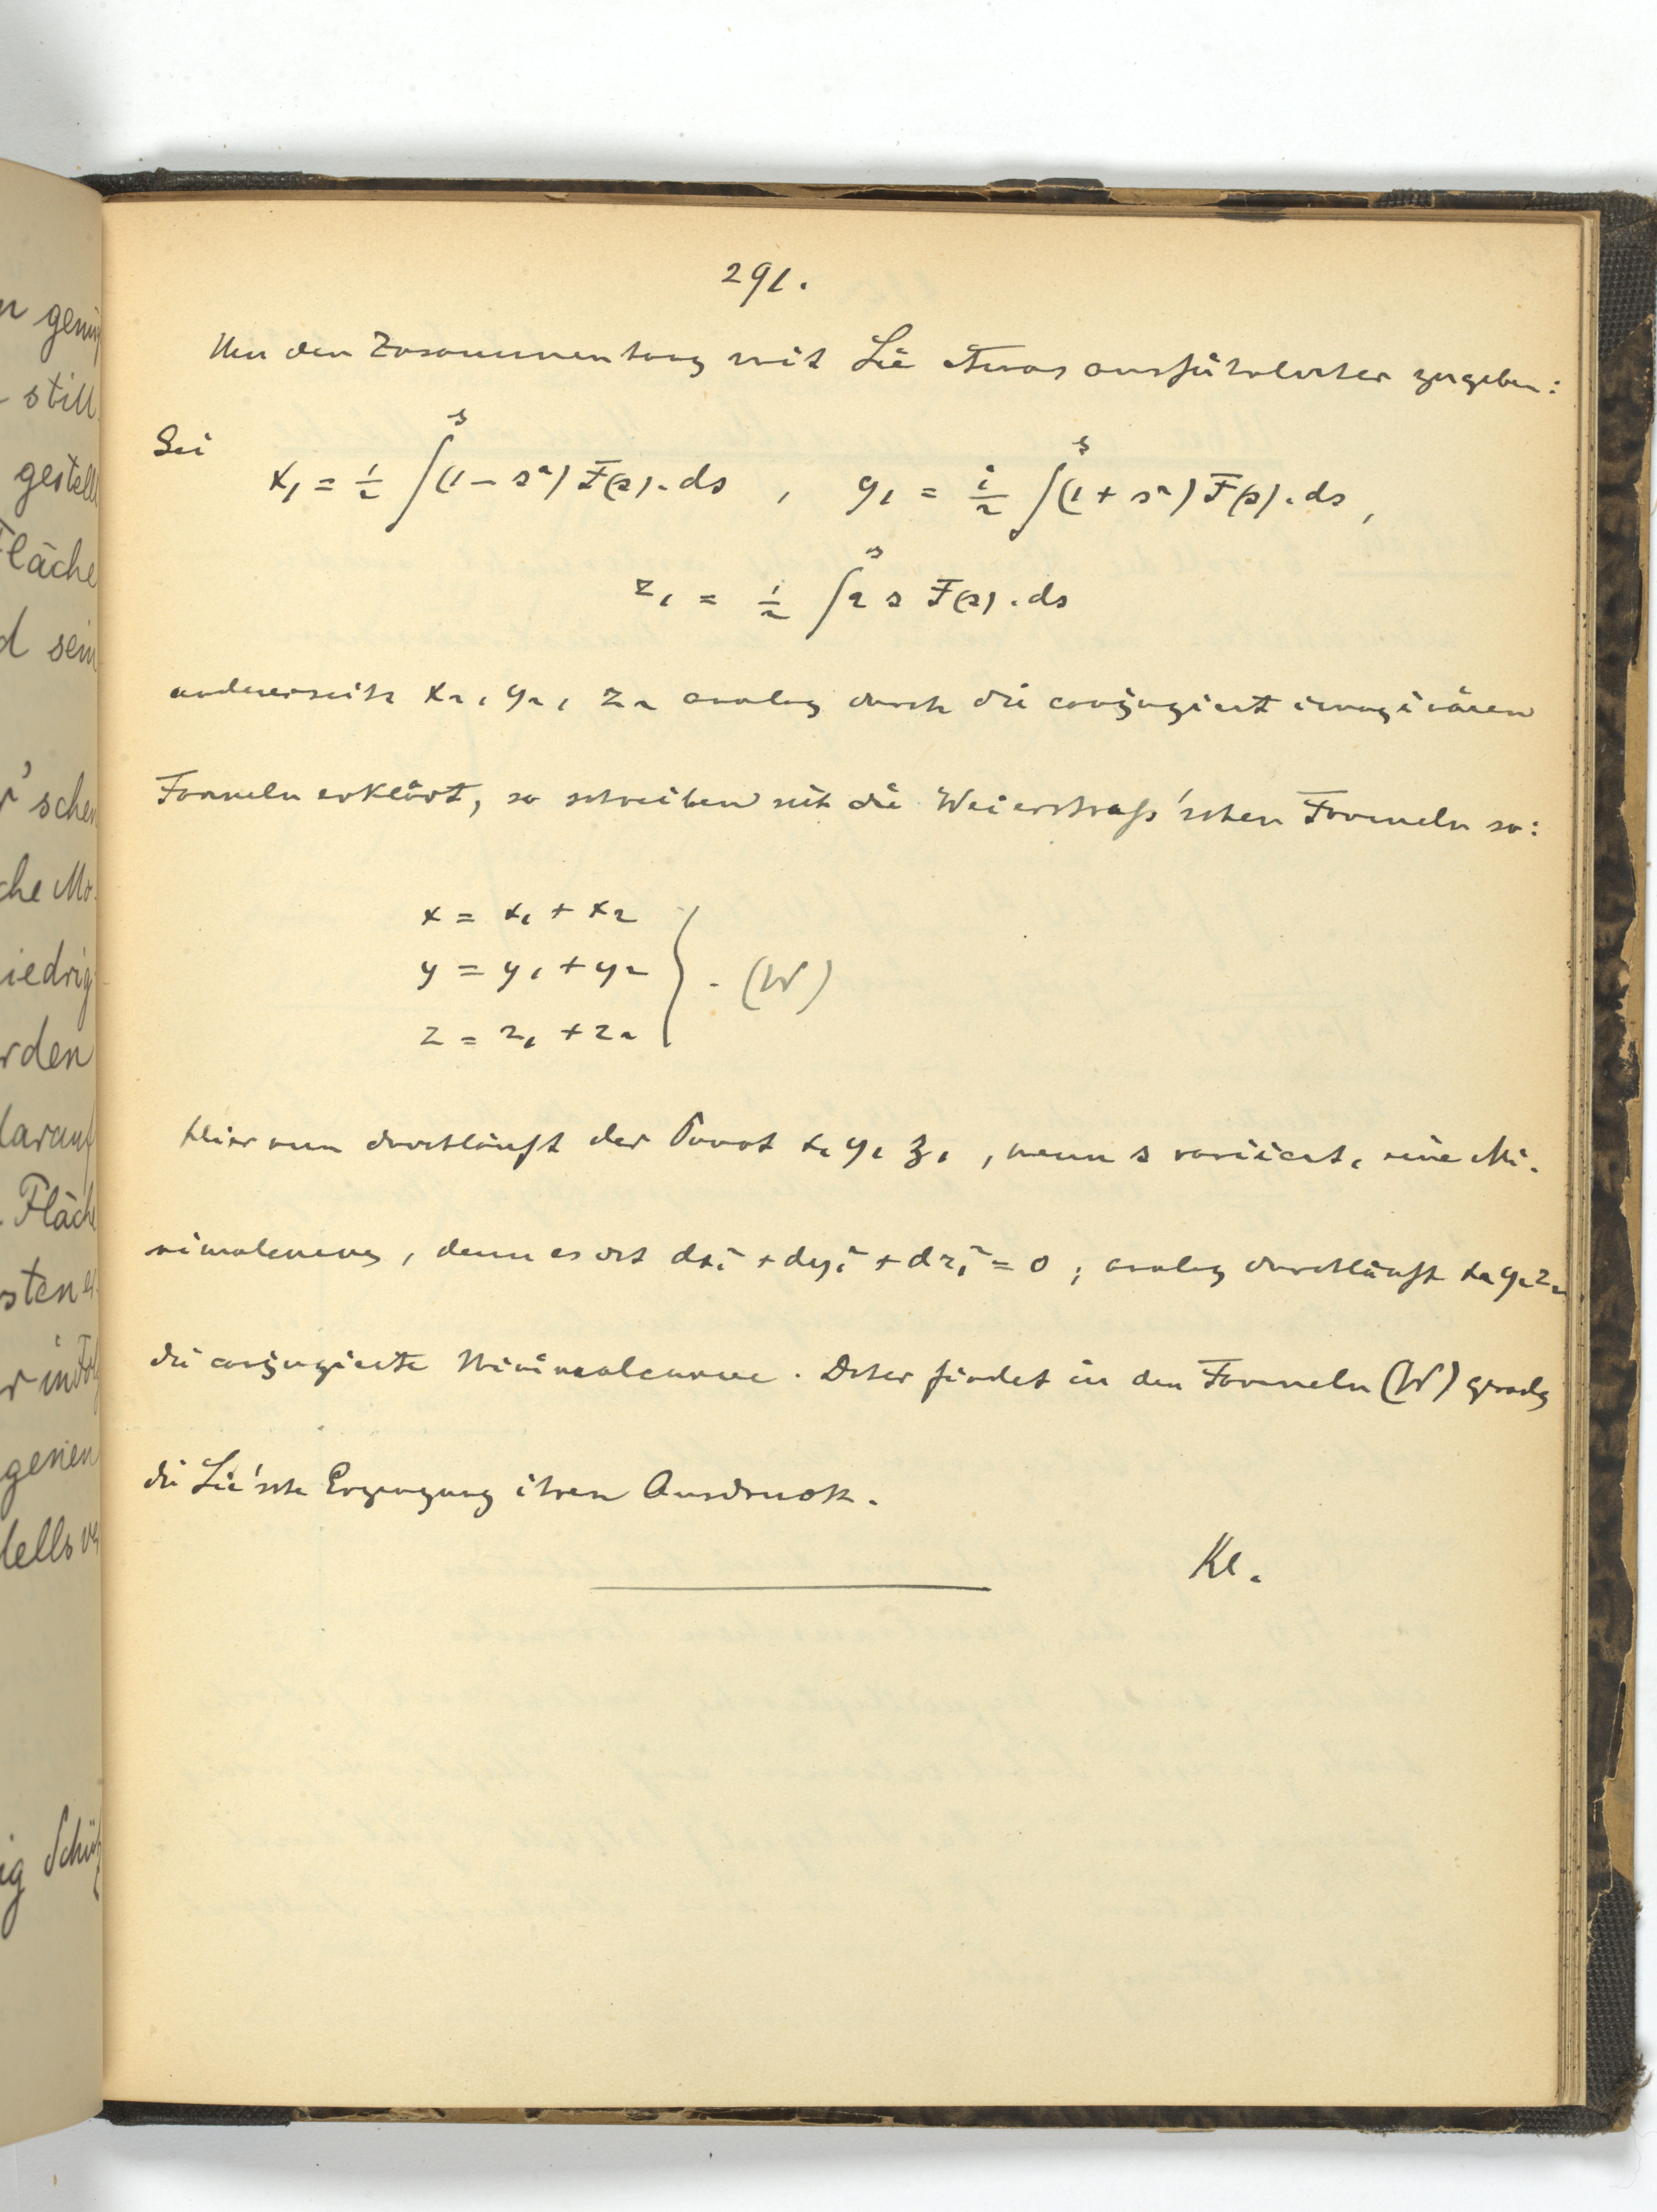 291.
Um den Zusammenhang mit Lie etwas ausführlicher zu geben:
Sei
x₁ = 1/2 ∫^s (1 − s²) F(s). ds , y₁ = i/2 ∫^s (1 + s²) F(s). ds,
z₁ = 1/2 ∫^s 2 s F(s). ds
andererseits x₂, y₂, z₂ analog durch die conjugiert imaginären
Formeln erklärt, so schreiben sich die Weierstraß'schen Formeln so:
x = x₁ + x₂
y = y₁ + y₂ } . (W)
z = z₁ + z₂
Hier nun durchläuft der Punct x₁ y₁ z₁, wenn s variiert, eine Mi-
nimalcurve, denn es ist dx₁² + dy₁² + dz₁² = 0; analog durchläuft x₂ y₂ z₂
die conjugierte Minimalcurve. Daher findet in den Formeln (W) grade
die Lie'sche Erzeugung ihren Ausdruck.
Kl.
n genüg
still
gestell
Fläche
d sein
r'schen
che Mo-
iedrig
rden
darauf
Fläche
sten
r in
genen
dells
ig Schü